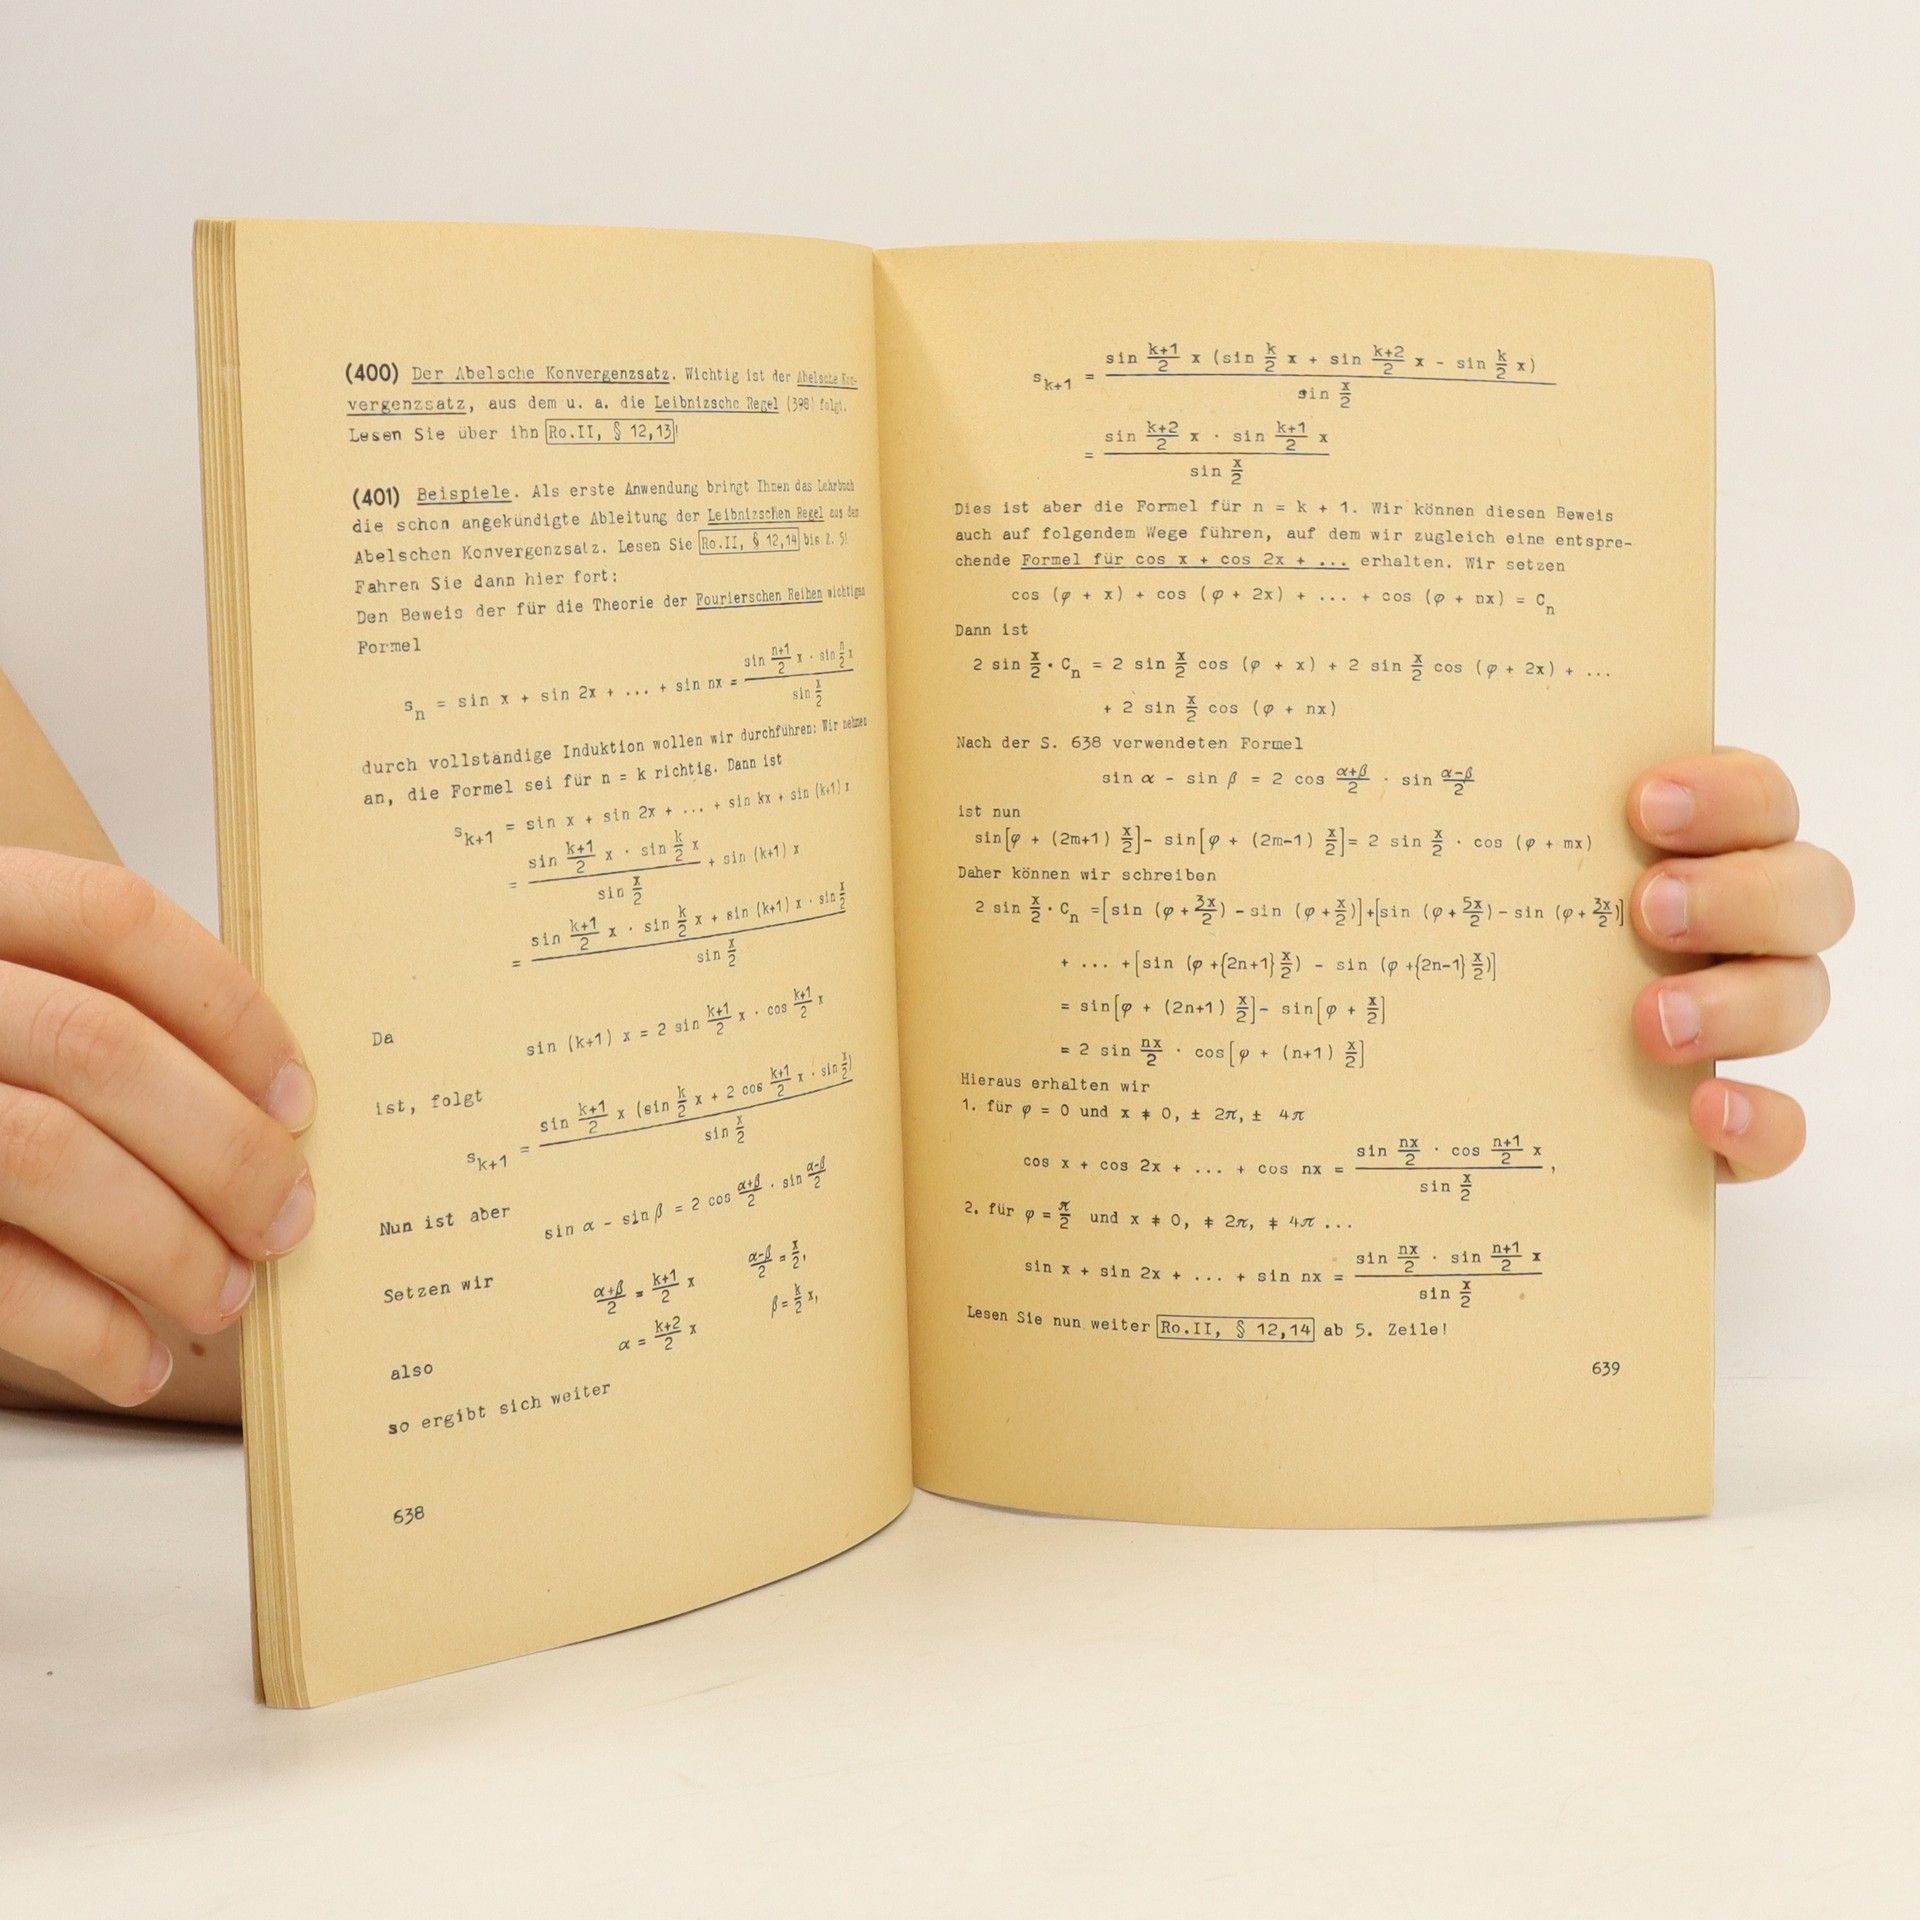 (400) Der Abelsche Konvergenzsatz. Wichtig ist der Abelsche Kon-
vergenzsatz, aus dem u. a. die Leibnizsche Regel (398) folgt.
Lesen Sie über ihn Ro.II, § 12,13!
(401) Beispiele. Als erste Anwendung bringt Ihnen das Lehrbuch
die schon angekündigte Ableitung der Leibnizschen Regel aus dem
Abelschen Konvergenzsatz. Lesen Sie Ro.II, § 12,14 bis Z. 5!
Fahren Sie dann hier fort:
Den Beweis der für die Theorie der Fourierschen Reihen wichtigen
Formel
s_n = sin x + sin 2x + ... + sin nx = (sin (n+1)/2 x · sin n/2 x) / (sin x/2)
durch vollständige Induktion wollen wir durchführen: Wir nehmen
an, die Formel sei für n = k richtig. Dann ist
s_k+1 = sin x + sin 2x + ... + sin kx + sin (k+1) x
= (sin (k+1)/2 x · sin k/2 x) / (sin x/2) + sin (k+1) x
= (sin (k+1)/2 x · sin k/2 x + sin (k+1) x · sin x/2) / (sin x/2)
Da
sin (k+1) x = 2 sin (k+1)/2 x · cos (k+1)/2 x
ist, folgt
s_k+1 = (sin (k+1)/2 x (sin k/2 x + 2 cos (k+1)/2 x · sin x/2)) / (sin x/2)
Nun ist aber
sin α - sin β = 2 cos (α+β)/2 · sin (α-β)/2
Setzen wir
(α+β)/2 = (k+1)/2 x (α-β)/2 = x/2,
α = (k+2)/2 x β = k/2 x,
also
so ergibt sich weiter
638
s_k+1 = (sin (k+1)/2 x (sin k/2 x + sin (k+2)/2 x - sin k/2 x)) / (sin x/2)
= (sin (k+2)/2 x · sin (k+1)/2 x) / (sin x/2)
Dies ist aber die Formel für n = k + 1. Wir können diesen Beweis
auch auf folgendem Wege führen, auf dem wir zugleich eine entspre-
chende Formel für cos x + cos 2x + ... erhalten. Wir setzen
cos (φ + x) + cos (φ + 2x) + ... + cos (φ + nx) = C_n
Dann ist
2 sin x/2 · C_n = 2 sin x/2 cos (φ + x) + 2 sin x/2 cos (φ + 2x) + ...
+ 2 sin x/2 cos (φ + nx)
Nach der S. 638 verwendeten Formel
sin α - sin β = 2 cos (α+β)/2 · sin (α-β)/2
ist nun
sin[φ + (2m+1) x/2] - sin[φ + (2m-1) x/2] = 2 sin x/2 · cos (φ + mx)
Daher können wir schreiben
2 sin x/2 · C_n = [sin (φ + 3x/2) - sin (φ + x/2)] + [sin (φ + 5x/2) - sin (φ + 3x/2)]
+ ... + [sin (φ + {2n+1} x/2) - sin (φ + {2n-1} x/2)]
= sin[φ + (2n+1) x/2] - sin[φ + x/2]
= 2 sin nx/2 · cos[φ + (n+1) x/2]
Hieraus erhalten wir
1. für φ = 0 und x ≠ 0, ± 2π, ± 4π
cos x + cos 2x + ... + cos nx = (sin nx/2 · cos (n+1)/2 x) / (sin x/2),
2. für φ = π/2 und x ≠ 0, ≠ 2π, ≠ 4π ...
sin x + sin 2x + ... + sin nx = (sin nx/2 · sin (n+1)/2 x) / (sin x/2)
Lesen Sie nun weiter Ro.II, § 12,14 ab 5. Zeile!
639